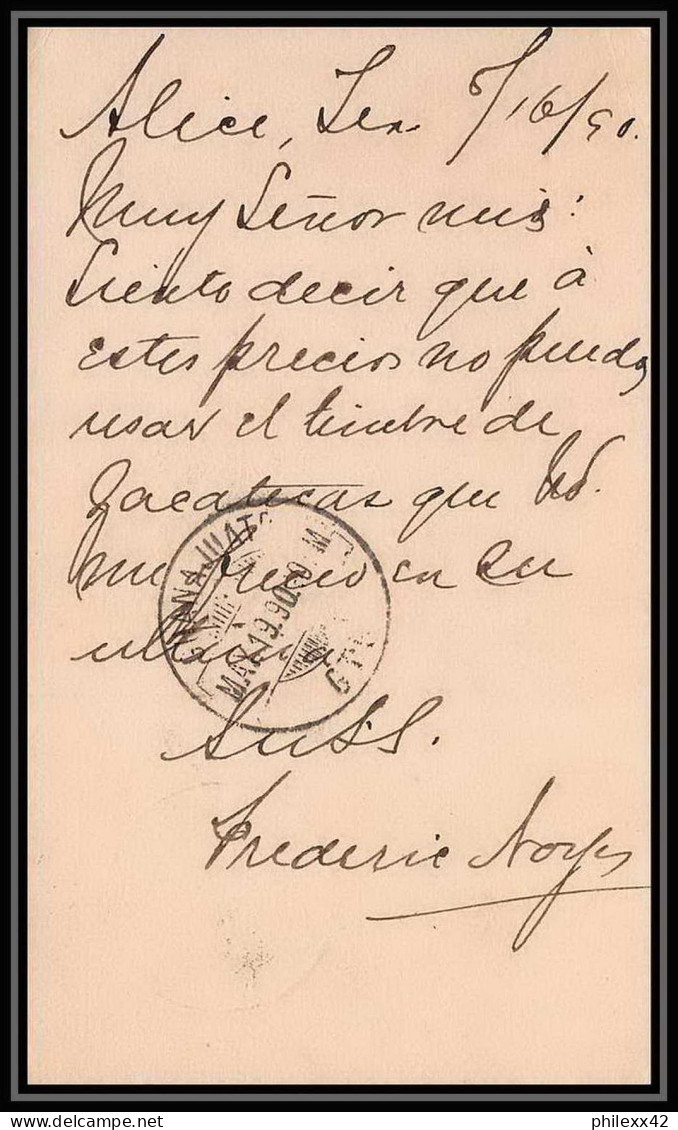 Alice, Tex. 5/16/90.
Muy Señor mio:
Siento decir que à
estos precios no puedo
usar el timbre de
Zacatecas que Ud.
me en su
ultima
GUANAJUATO
MAY 19.90 M
GTO
Frederic Noyes
philexx42